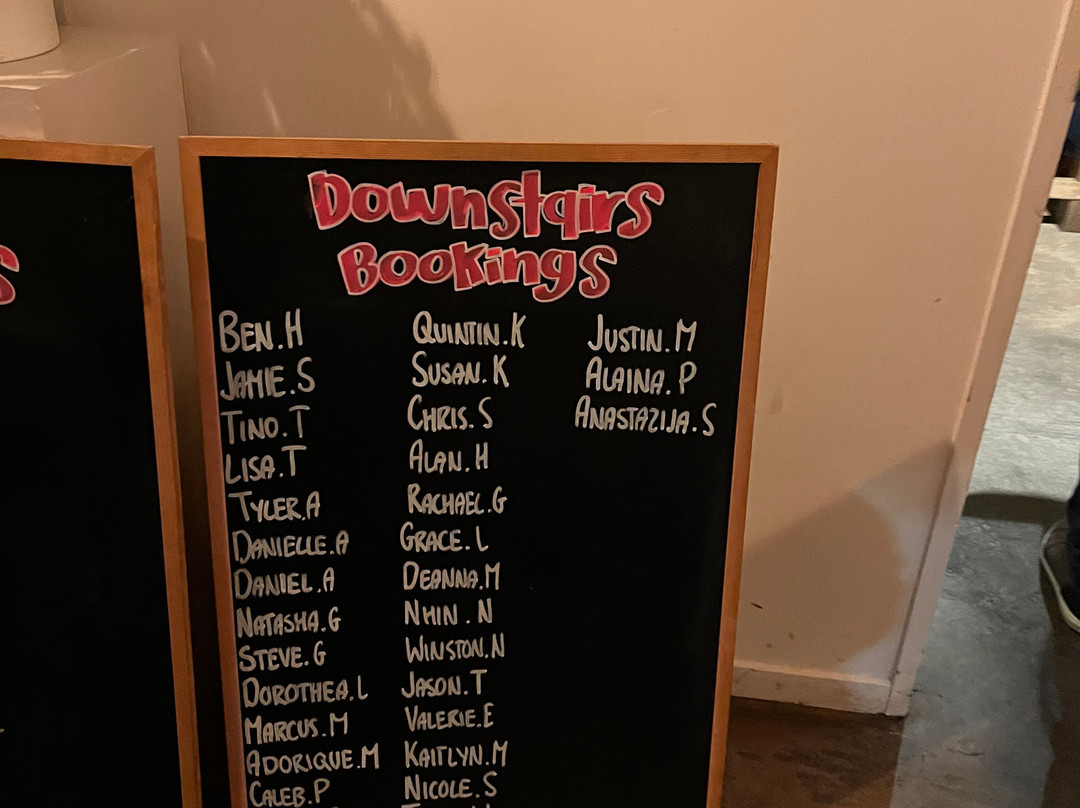 Downstairs
Bookings
BEN.H
JAMIE.S
TINO.T
LISA.T
TYLER.A
DANIELLE.A
DANIEL.A
NATASHA.G
STEVE.G
DOROTHEA.L
MARCUS.M
ADORIQUE.M
CALEB.P
QUINTIN.K
SUSAN.K
CHRIS.S
ALAN.H
RACHAEL.G
GRACE.L
DEANNA.M
NHIN.N
WINSTON.N
JASON.T
VALERIE.E
KAITLYN.M
NICOLE.S
JUSTIN.M
ALAINA.P
ANASTAZIJA.S